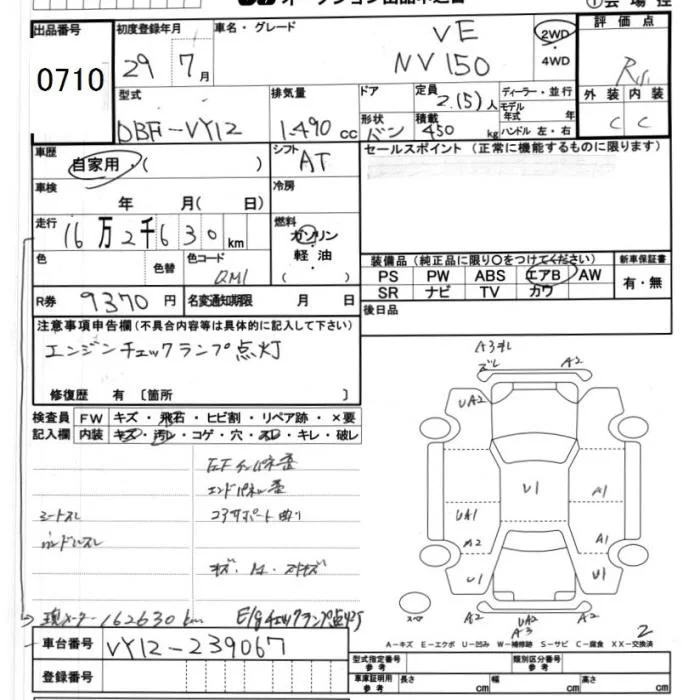 オークション出品申込書
会場控
出品番号 初度登録年月 車名・グレード 評価点
0710 29年 7月 VE 2WD・4WD
NV150
外装 内装
C C
型式 排気量 ドア 定員 ディーラー・並行
DBF-VY12 1.490cc 2(5)人 モデル年式 年
形状 バン 積載 450kg ハンドル 左・右
車歴 シフト セールスポイント (正常に機能するものに限ります)
自家用・( ) AT
車検 冷房
年 月( 日)
走行 燃料
16万2千630km ガソリン・軽油・( )
色 色替 色コード QM1
装備品 (純正品に限り○をつけてください) 新車保証書
PS PW ABS エアB AW 有・無
SR ナビ TV カワ
R券 9370円 名変通知期限 月 日 後日品
注意事項申告欄 (不具合内容等は具体的に記入して下さい)
エンジンチェックランプ点灯
修復歴 有 〔箇所 〕
検査員 FW キズ・飛石・ヒビ割・リペア跡・×要
記入欄 内装 キズ・汚レ・コゲ・穴・スレ・キレ・破レ
エンドパネル歪
シートスレ コアサポート曲り
ハンドルスレ
現メーター162630km E/gチェックランプ点灯
車台番号 VY12-239067
登録番号
ズレ A2
UA2
U1 A1
UA1
A2 A1
U1 U1
スペア A2 UA2 A2
A3
2
A-キズ E-エクボ U-凹み W-補修跡 S-サビ C-腐食 XX-交換済
型式指定番号 参考 類別区分番号 参考
車庫証明用 参考 長さ cm 幅 cm 高さ cm